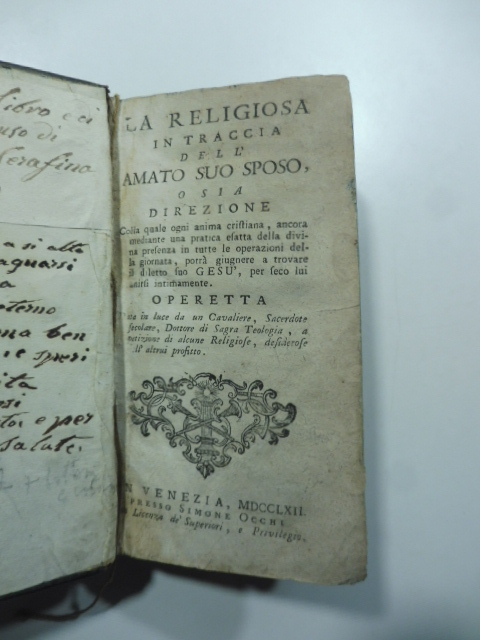 libro e ci
uso di
Serafina
a si alta
aguarsi
a
eterno
ma ben
e speri
ita
rsi
ta, e per
salute.
LA RELIGIOSA
IN TRACCIA
DELL'
AMATO SUO SPOSO,
O SIA
DIREZIONE
Colla quale ogni anima cristiana, ancora
mediante una pratica esatta della divi-
na presenza in tutte le operazioni del-
la giornata, potrà giugnere a trovare
il diletto suo GESU', per seco lui
unirsi intimamente.
OPERETTA
in luce da un Cavaliere, Sacerdote
secolare, Dottore di Sagra Teologia, a
di alcune Religiose, desiderose
d' altrui profitto.
IN VENEZIA, MDCCLXII.
PRESSO SIMONE OCCHI
Licenza de' Superiori, e Privilegio.